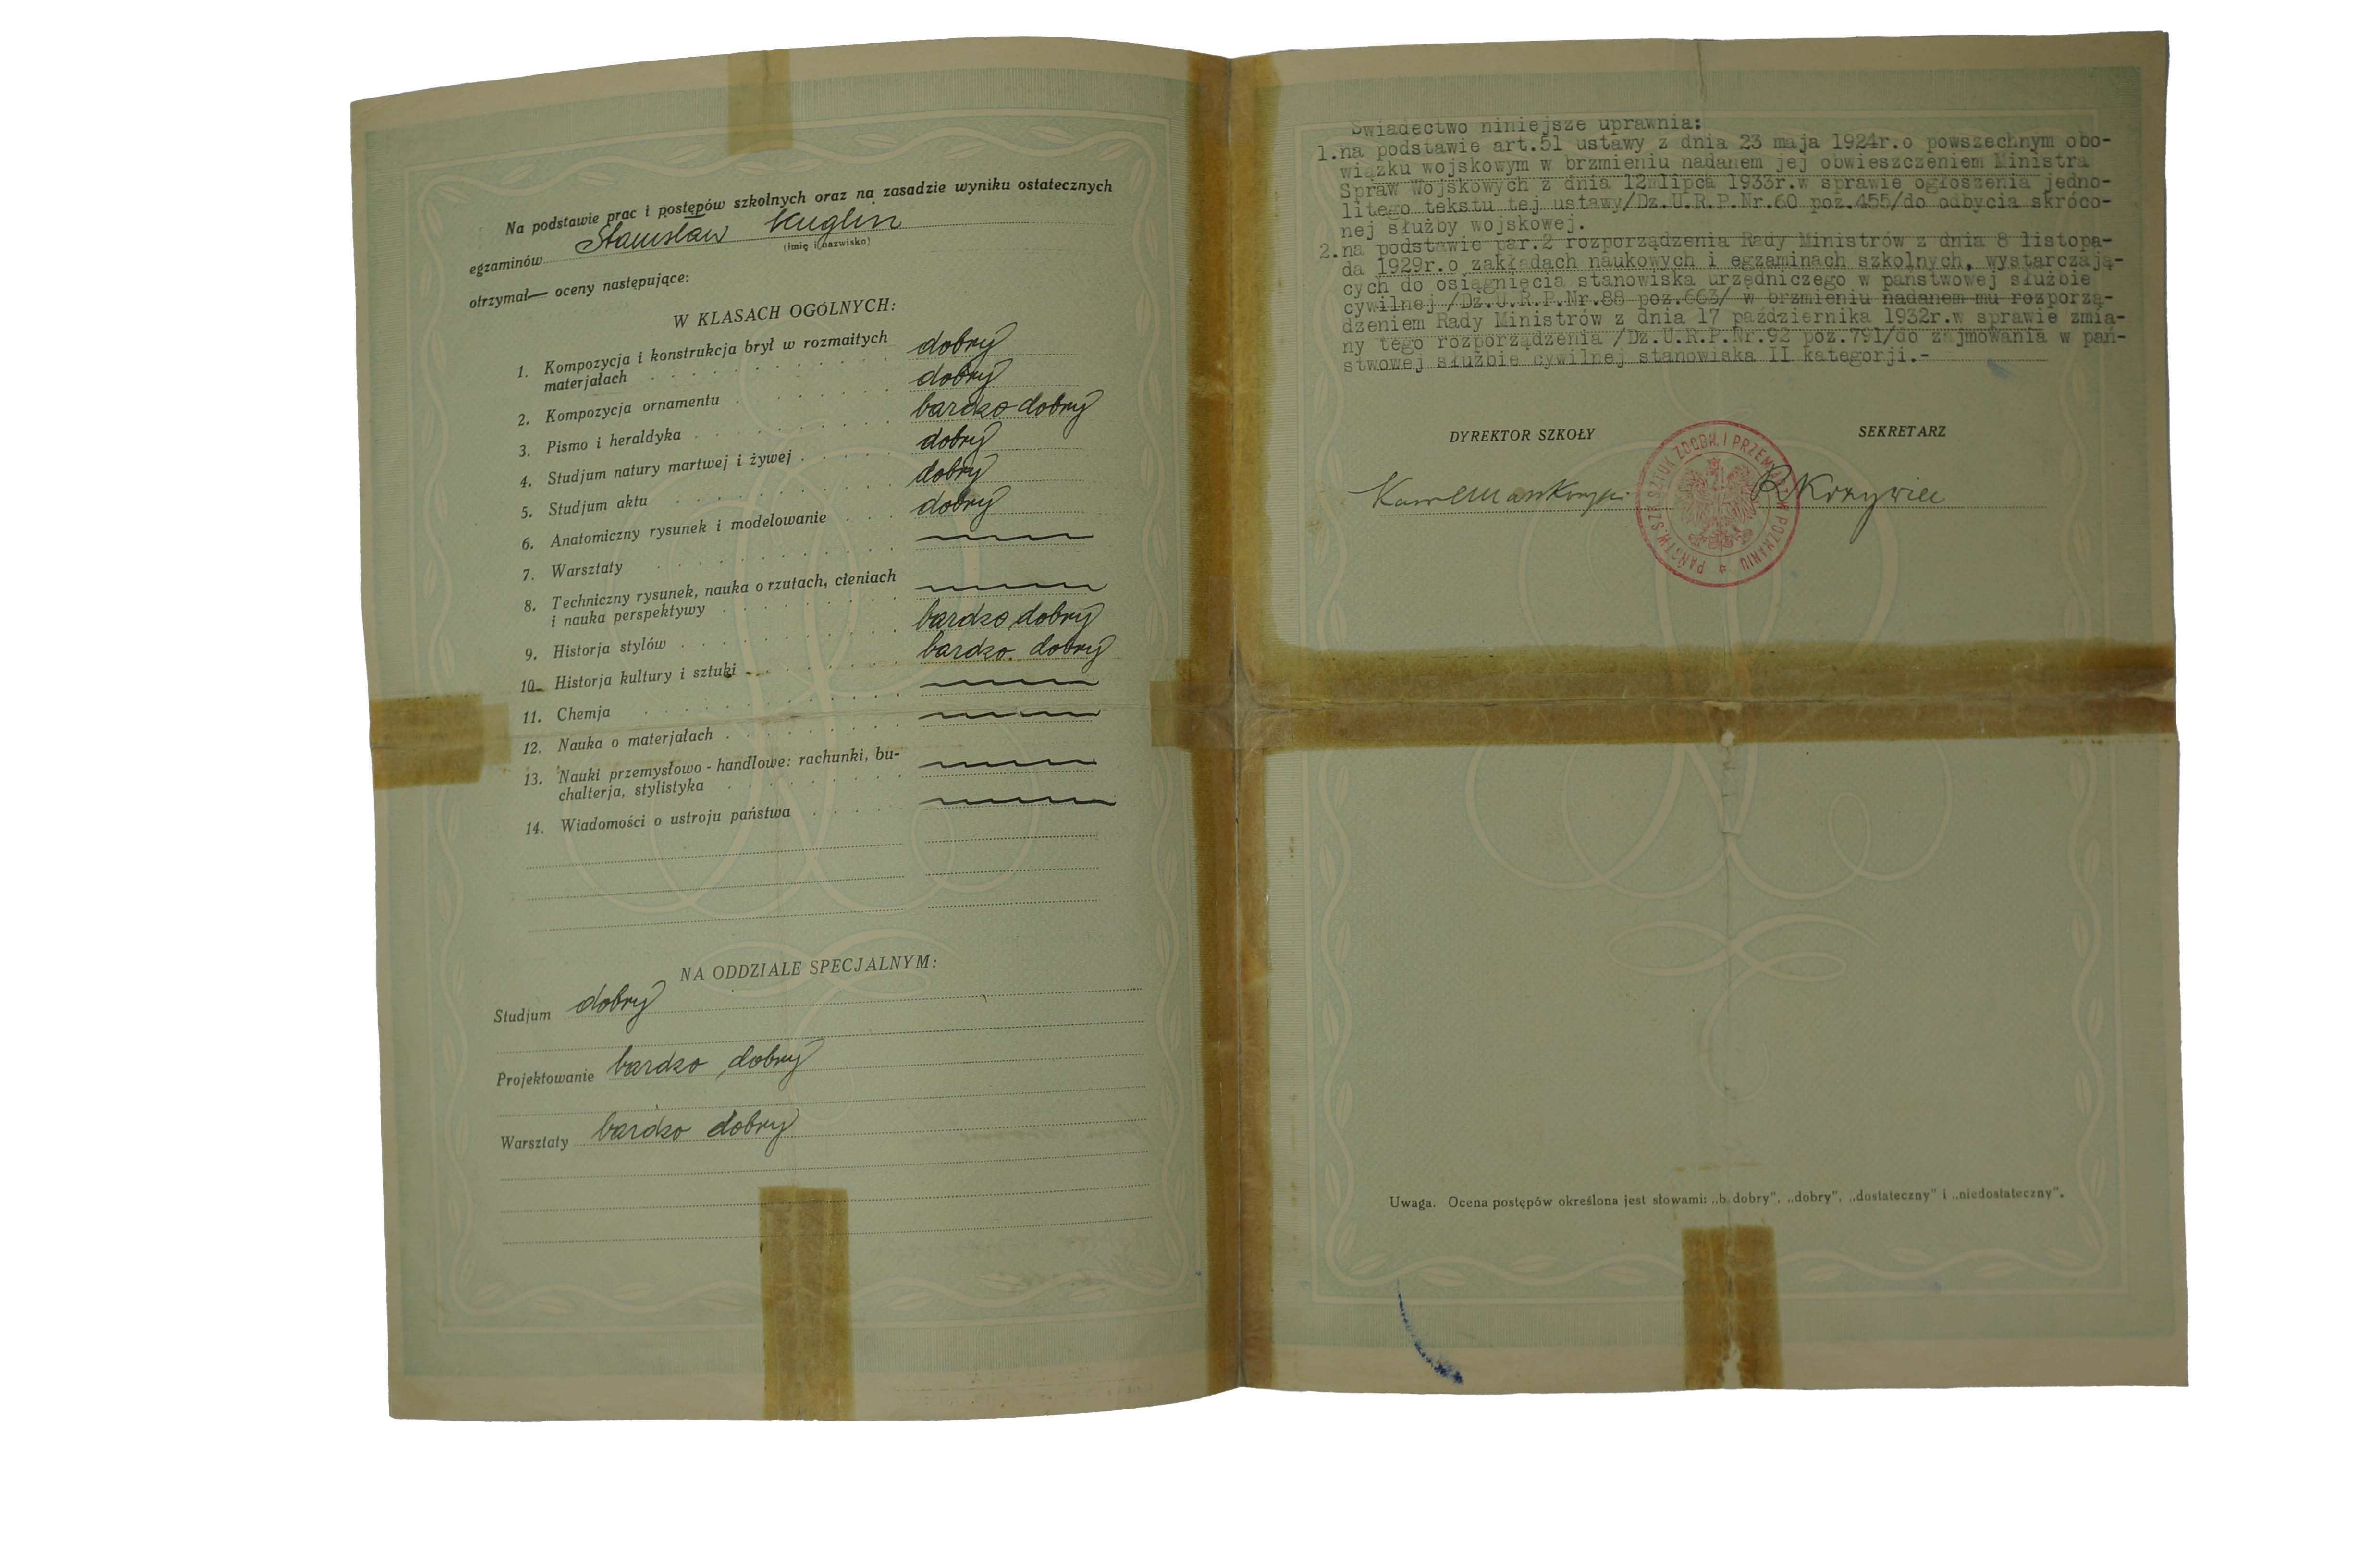 Na podstawie prac i postępów szkolnych oraz na zasadzie wyniku ostatecznych
egzaminów Stanisław Kuglin
(imię i nazwisko)
otrzymał— oceny następujące:
W KLASACH OGÓLNYCH:
1. Kompozycja i konstrukcja brył w rozmaitych
materjałach dobry
2. Kompozycja ornamentu dobry
3. Pismo i heraldyka bardzo dobry
4. Studjum natury martwej i żywej dobry
5. Studjum aktu dobry
6. Anatomiczny rysunek i modelowanie dobry
7. Warsztaty
8. Techniczny rysunek, nauka o rzutach, cieniach
i nauka perspektywy
9. Historja stylów bardzo dobry
10. Historja kultury i sztuki bardzo dobry
11. Chemja
12. Nauka o materjałach
13. Nauki przemysłowo-handlowe: rachunki, bu-
chalterja, stylistyka
14. Wiadomości o ustroju państwa
NA ODDZIALE SPECJALNYM:
Studjum dobry
Projektowanie bardzo dobry
Warsztaty bardzo dobry
Świadectwo niniejsze uprawnia:
1.na podstawie art.51 ustawy z dnia 23 maja 1924r.o powszechnym obo-
wiązku wojskowym w brzmieniu nadanem jej obwieszczeniem Ministra
Spraw Wojskowych z dnia 12mlipca 1933r.w sprawie ogłoszenia jedno-
litego tekstu tej ustawy/Dz.U.R.P.Nr.60 poz.455/do odbycia skróco-
nej służby wojskowej.
2.na podstawie par.2 rozporządzenia Rady Ministrów z dnia 8 listopa-
da 1929r.o zakładach naukowych i egzaminach szkolnych, wystarczają-
cych do osiągnięcia stanowiska urzędniczego w państwowej służbie
cywilnej /Dz.U.R.P.Nr.88 poz.663/ w brzmieniu nadanem mu rozporzą-
dzeniem Rady Ministrów z dnia 17 października 1932r.w sprawie zmia-
ny tego rozporządzenia /Dz.U.R.P.Nr.92 poz.791/do zajmowania w pań-
stwowej służbie cywilnej stanowiska II kategorji.-
DYREKTOR SZKOŁY SEKRETARZ
PAŃSTW. SZK. SZTUK ZDOBN. I PRZEM. W POZNANIU
Uwaga. Ocena postępów określona jest słowami: „b. dobry", „dobry", „dostateczny" i „niedostateczny".